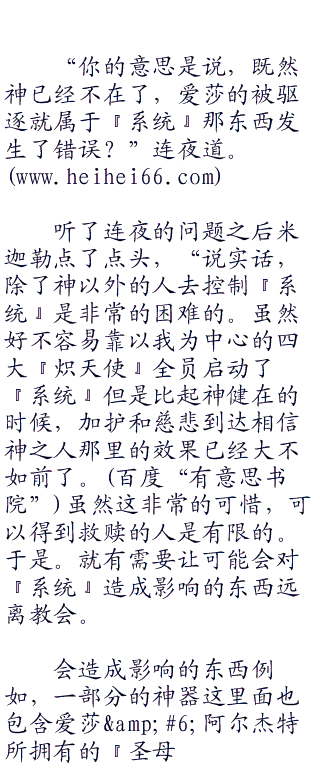 “你的意思是说，既然
神已经不在了，爱莎的被驱
逐就属于『系统』那东西发
生了错误？”连夜道。
(www.heihei66.com)
听了连夜的问题之后米
迦勒点了点头，“说实话，
除了神以外的人去控制『系
统』是非常的困难的。虽然
好不容易靠以我为中心的四
大『炽天使』全员启动了
『系统』但是比起神健在的
时候，加护和慈悲到达相信
神之人那里的效果已经大不
如前了。(百度“有意思书
院”)虽然这非常的可惜，可
以得到救赎的人是有限的。
于是。就有需要让可能会对
『系统』造成影响的东西远
离教会。
会造成影响的东西例
如，一部分的神器这里面也
包含爱莎&amp;#6;阿尔杰特
所拥有的『圣母